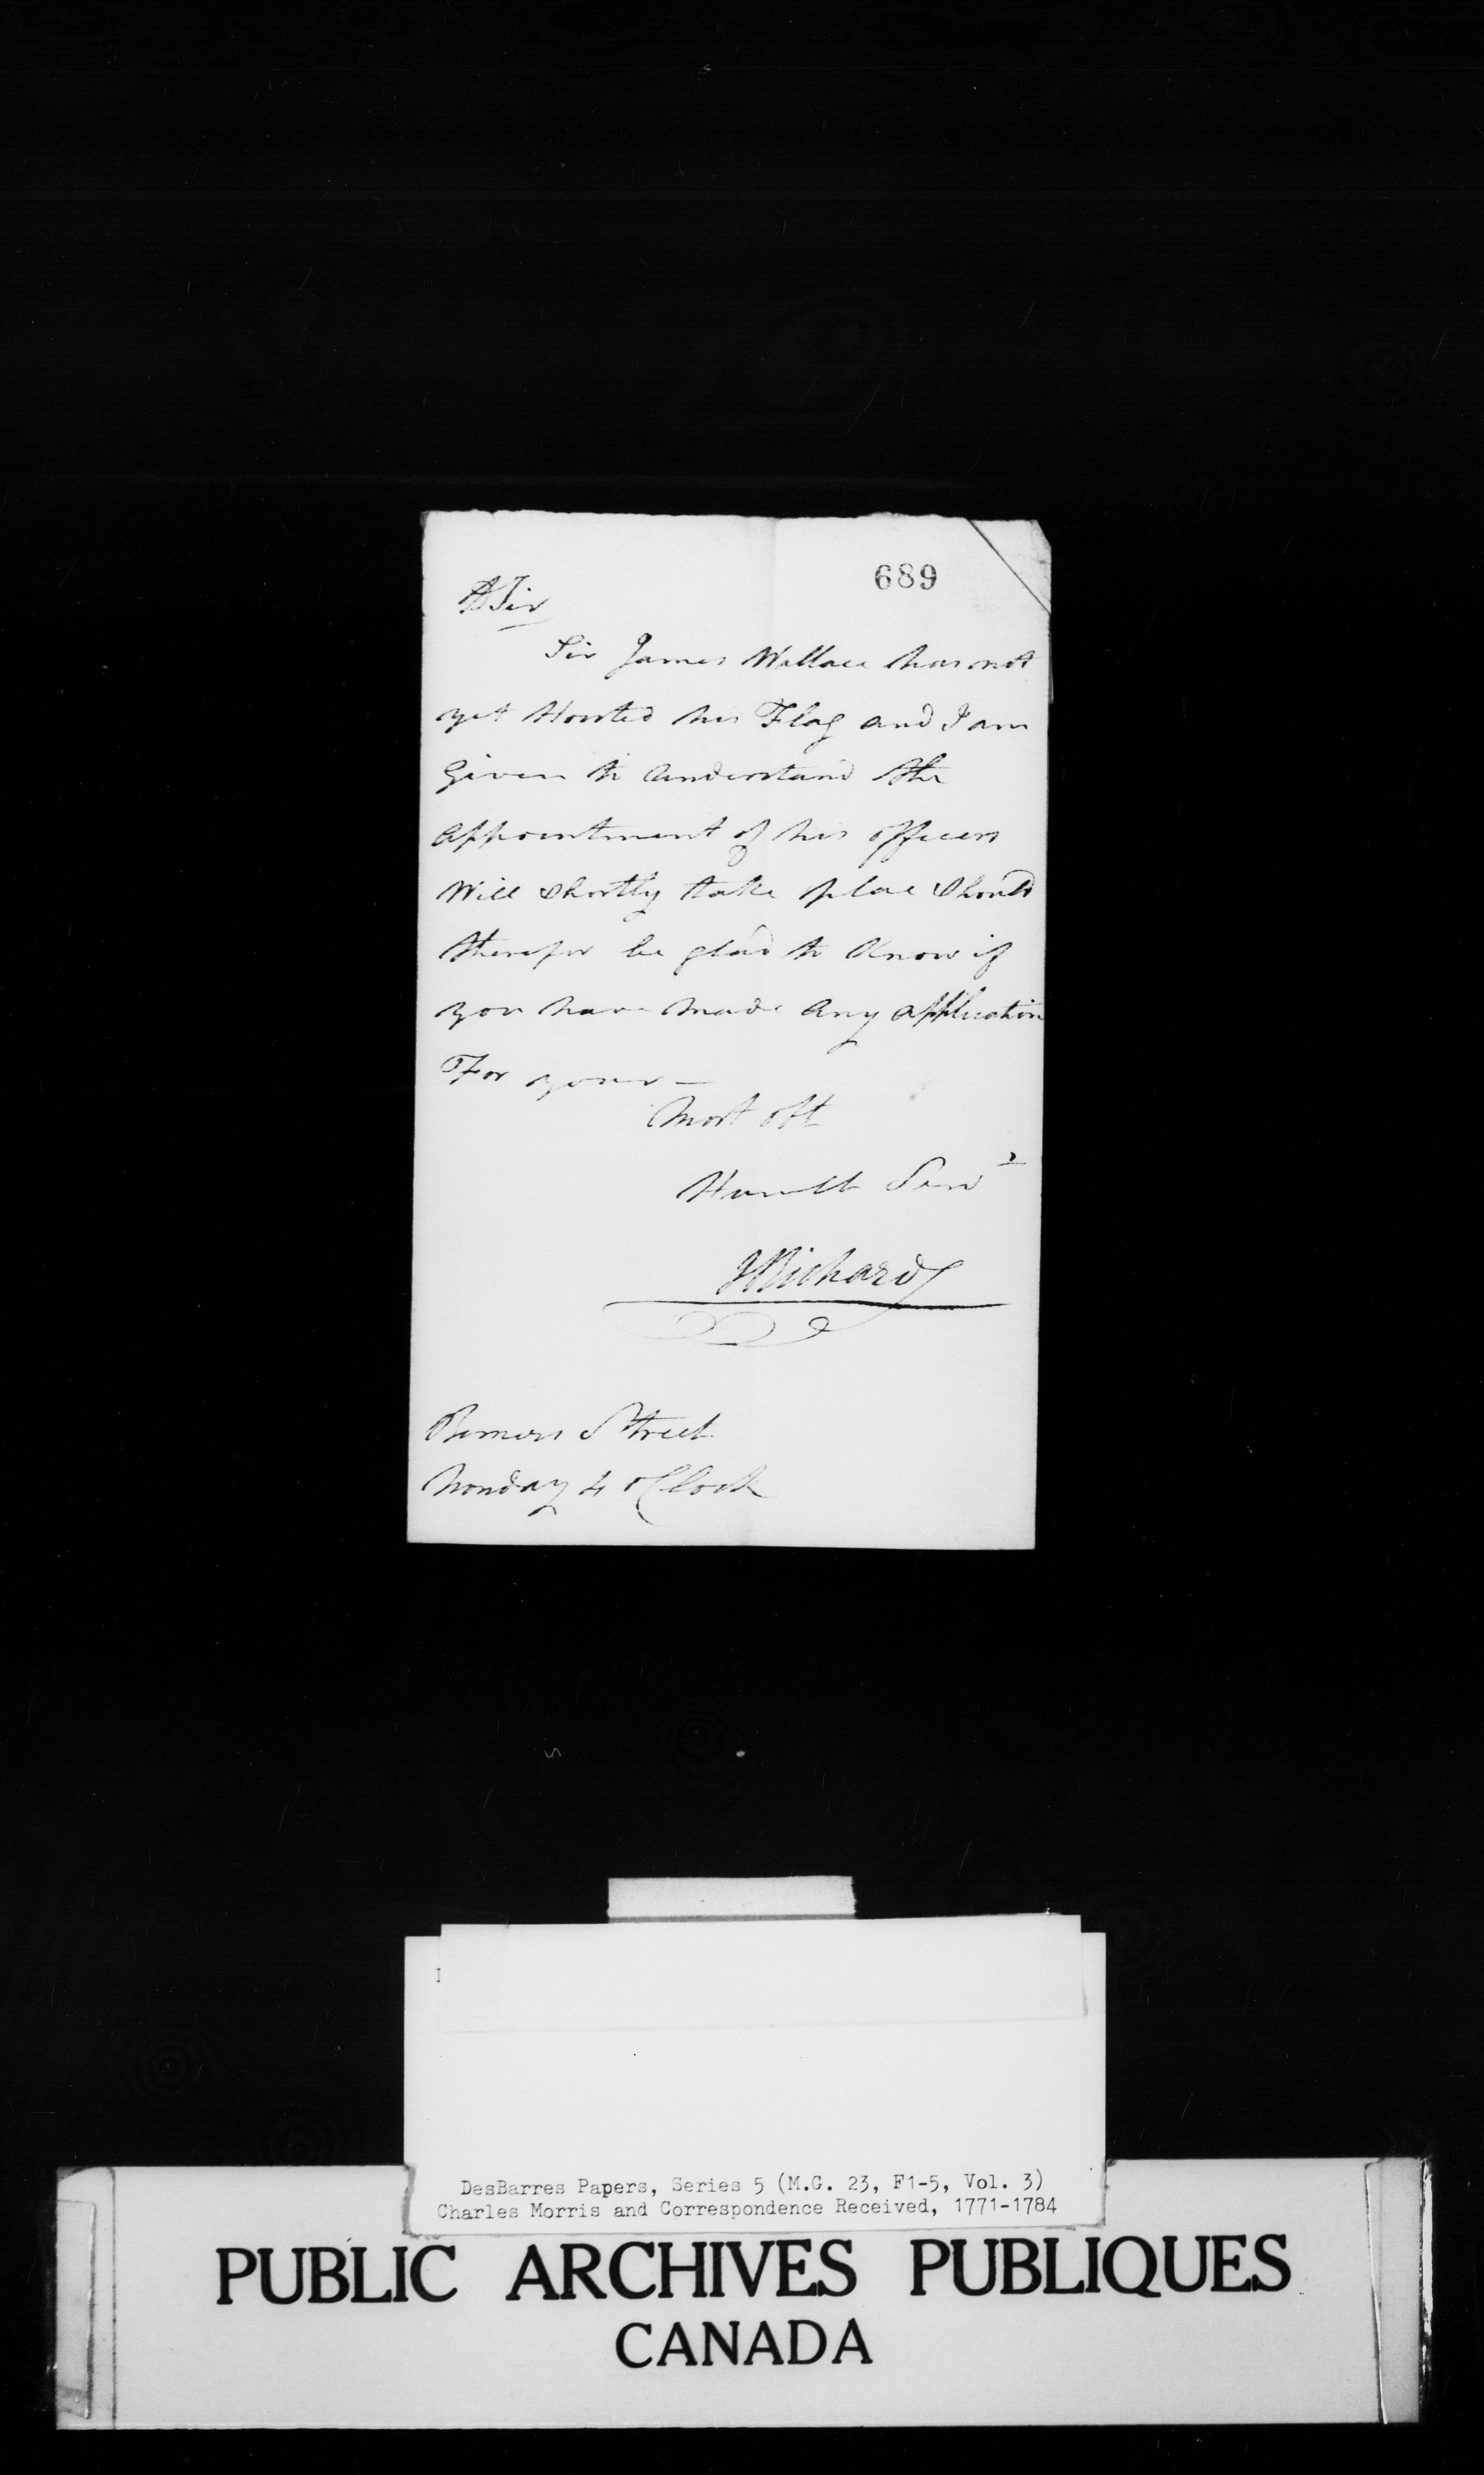 689
DSir
Sir James Wallace has not
yet Hoisted his Flag and I am
Given to understand the
appointment of his officers
Will shortly take place Should
therefor be glad to Know if
you have made any application
For your—
Most obt
Humble Servt
Berners Street
Monday 4 oClock
DesBarres Papers, Series 5 (M.G. 23, F1-5, Vol. 3)
Charles Morris and Correspondence Received, 1771-1784
PUBLIC ARCHIVES PUBLIQUES
CANADA